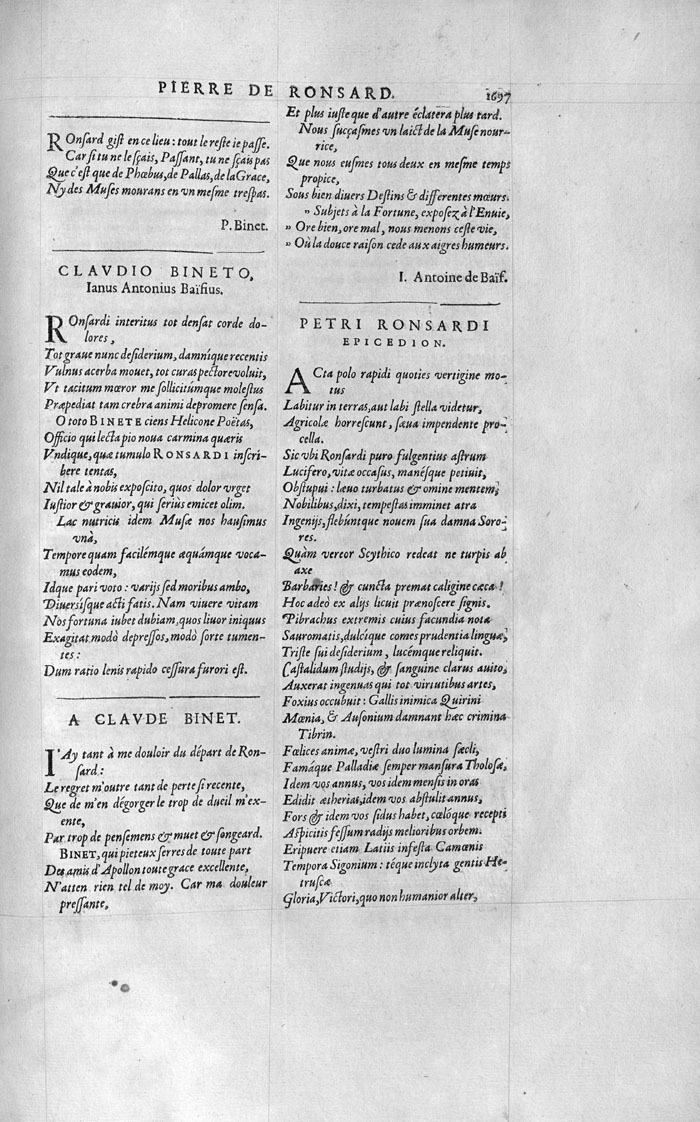 PIERRE DE RONSARD. 1697
ROnſard giſt en ce lieu: tout le reſte ie paſſe.
Car ſi tu ne le ſçais, Paſſant, tu ne ſçais pas
Que c'eſt que de Phœbus, de Pallas, de la Grace,
Ny des Muſes mourans en vn meſme treſpas.
P. Binet.
CLAVDIO BINETO,
Ianus Antonius Baïfius.
ROnſardi interitus tot denſat corde do-
lores,
Tot graue nunc deſiderium, damníque recentis
Vulnus acerba mouet, tot curas pectore voluit,
Vt tacitum mœror me ſollicitúmque moleſtus
Præpediat tam crebra animi depromere ſenſa.
O toto BINETE ciens Helicone Poëtas,
Officio qui lecta pio noua carmina quæris
Vndique, quæ tumulo RONSARDI inſcri-
bere tentas,
Nil tale à nobis expoſcito, quos dolor vrget
Iuſtior & grauior, qui ſeriùs emicet olim.
Lac nutricis idem Muſæ nos hauſimus
vnà,
Tempore quam facilémque æquámque voca-
mus eodem,
Idque pari voto: varijs ſed moribus ambo,
Diuersíſque acti fatis. Nam viuere vitam
Nos fortuna iubet dubiam, quos liuor iniquus
Exagitat modò depreſſos, modò ſorte tumen-
tes:
Dum ratio lenis rapido ceſſura furori eſt.
A CLAVDE BINET.
I'Ay tant à me douloir du départ de Ron-
ſard:
Le regret m'outre tant de perte ſi recente,
Que de m'en dégorger le trop de dueil m'ex-
ente,
Par trop de penſemens & muet & ſongeard.
BINET, qui pieteux ſerres de toute part
Des amis d'Apollon toute grace excellente,
N'atten rien tel de moy. Car ma douleur
preſſante,
Et plus iuſte que d'autre éclatera plus tard.
Nous ſucçaſmes vn laict de la Muſe nour-
rice,
Que nous euſmes tous deux en meſme temps
propice,
Sous bien diuers Deſtins & differentes mœurs.
" Subjets à la Fortune, expoſez à l'Enuie,
" Ore bien, ore mal, nous menons ceſte vie,
" Où la douce raiſon cede aux aigres humeurs.
I. Antoine de Baïf.
PETRI RONSARDI
EPICEDION.
ACta polo rapidi quoties vertigine mo-
tus
Labitur in terras, aut labi ſtella videtur,
Agricolæ horreſcunt, ſæua impendente pro-
cella.
Sic vbi Ronſardi puro fulgentius aſtrum
Lucifero, vitæ occaſus, manéſque petiuit,
Obſtupui: læuo turbatus & omine mentem,
Nobilibus, dixi, tempeſtas imminet atra
Ingenijs, flebúntque nouem ſua damna Soro-
res.
Quàm vereor Scythico redeat ne turpis ab
axe
Barbaries! & cuncta premat caligine cæca!
Hoc adeò ex alijs licuit prænoſcere ſignis.
Pibrachus extremis cuius facundia nota
Sauromatis, dulcíque comes prudentia linguæ,
Triſte ſui deſiderium, lucémque reliquit.
Caſtalidum ſtudijs, & ſanguine clarus auito,
Auxerat ingenuas qui tot virtutibus artes,
Foxius occubuit: Gallis inimica Quirini
Mœnia, & Auſonium damnant hæc crimina
Tibrin.
Fœlices animæ, veſtri duo lumina ſæcli,
Famáque Palladiæ ſemper manſura Tholoſæ,
Idem vos annus, vos idem menſis in oras
Edidit ætherias, idem vos abſtulit annus,
Fors & idem vos ſidus habet, cœlóque recepti
Aſpicitis feſſum radijs melioribus orbem.
Eripuere etiam Latiis infeſta Camœnis
Tempora Sigonium: téque inclyta gentis He-
truſcæ
Gloria, Victori, quo non humanior alter,